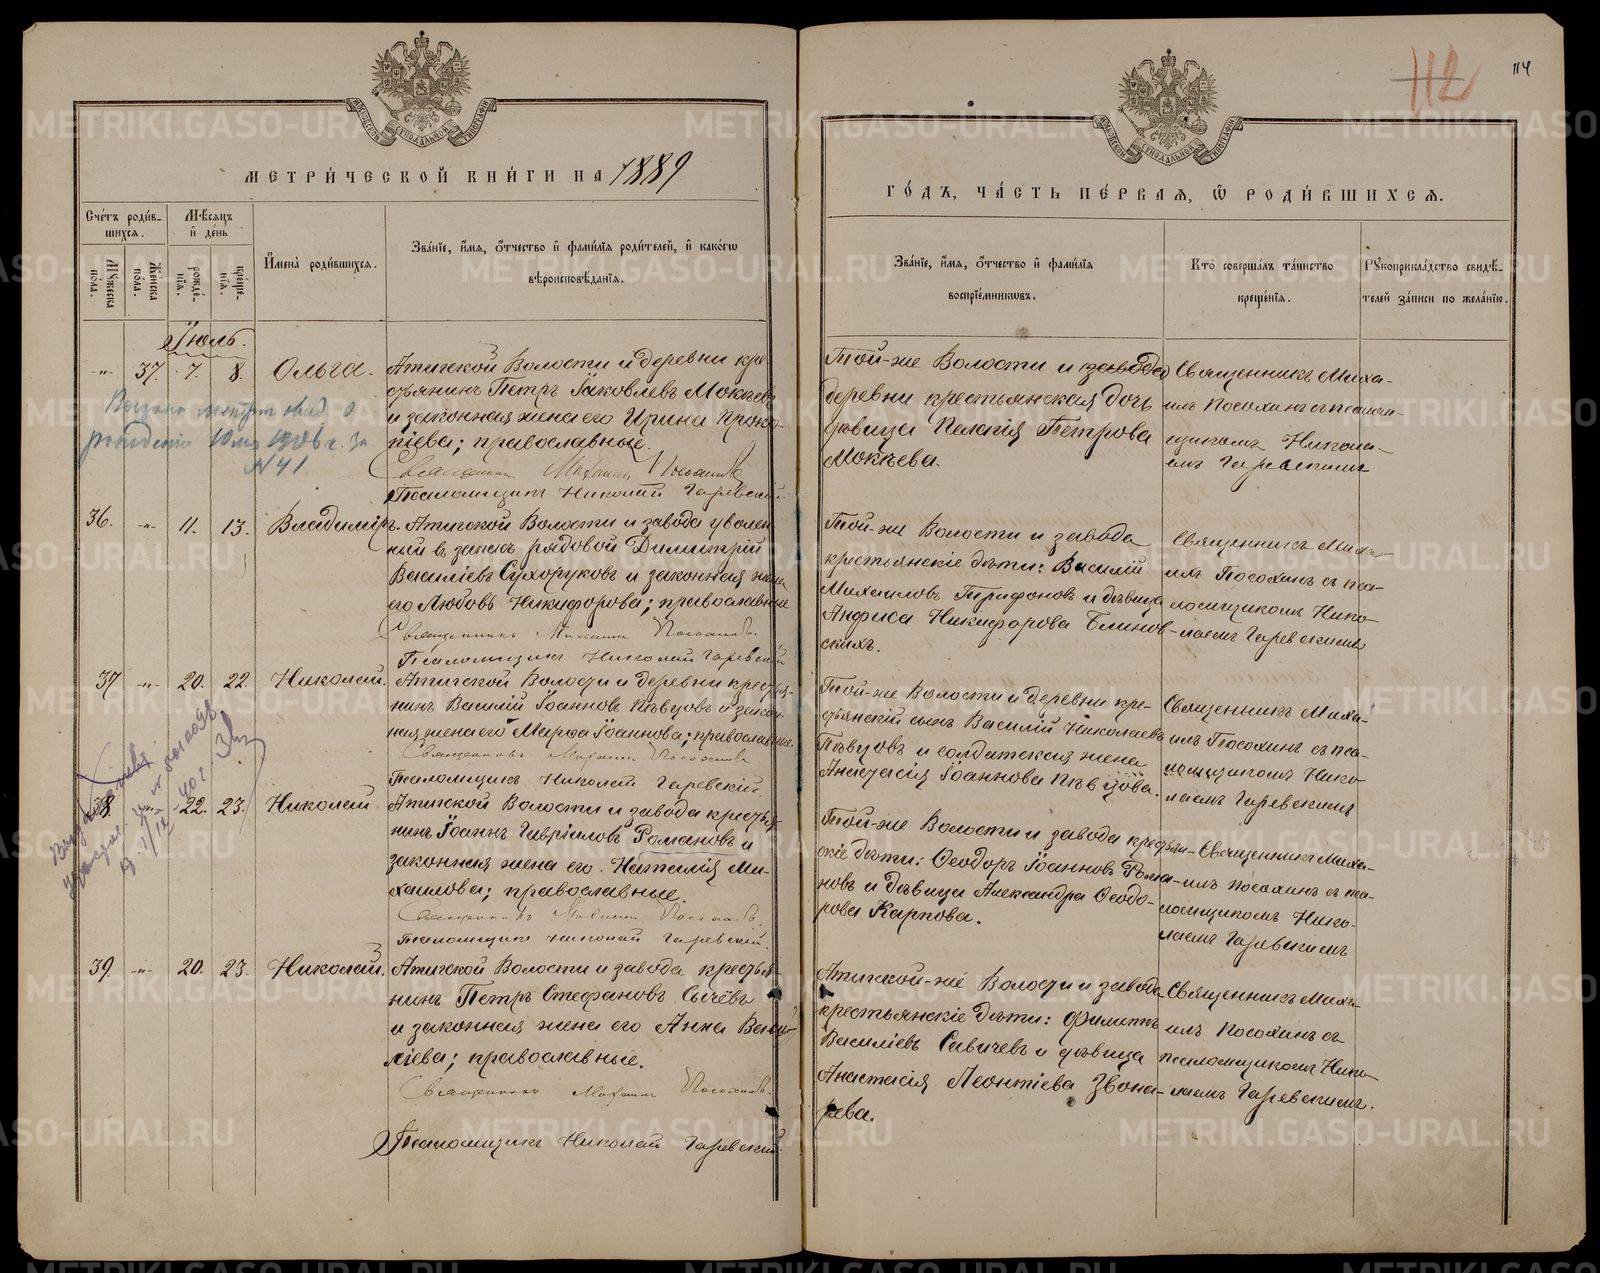 112
114
МОСКОВСКОЙ СѴНОДАЛЬНОЙ ТИПОГРАФІИ
МОСКОВСКОЙ СѴНОДАЛЬНОЙ ТИПОГРАФІИ
МЕТРИ́ЧЕСКОЙ КНИ́ГИ НА 1889
ГО́ДЪ, ЧА́СТЬ ПЕ́РВАЯ, Ѽ РОДИ́ВШИХСЯ.
Сче́тъ роди́в-
шихся.
Мꙋ́жеска по́ла.
Же́нска по́ла.
Мѣ́сяцъ
и҆ де́нь
рожде́-
нїя.
креще́-
нїя.
И҆мена̀ роди́вшихся.
Зва́нїе, и҆́мя, ѻ҆́тчество и҆ фами́лїя роди́телей, и҆ како́гѡ
вѣроисповѣ́данїя.
Зва́нїе, и҆́мя, ѻ҆́тчество и҆ фами́лїя
воспрїе́мниковъ.
Кто̀ соверша́лъ та́инство
креще́нїя.
Рꙋкоприкла́дство свидѣ́-
телей за́писи по жела́нїю.
Іюль.
-"- 37. 7. 8. Ольга.
Атигской Волости и деревни кре-
стьянинъ Петръ Іаковлевъ Мокѣевъ
и законная жена его Ирина Проко-
піева; православные.
Священникъ Михаилъ Посохинъ
Псаломщикъ Николай Гаревскій
Той-же Волости и завода
деревни крестьянская дочь
дѣвица Пелагія Петрова
Мокѣева.
Священникъ Миха-
илъ Посохинъ съ псалом-
щикомъ Никола-
емъ Гаревскимъ
рождении 1906 г. за
N 41.
36. -"- 11. 13. Владиміръ.
Атигской Волости и завода уволен-
ный въ запасъ рядовой Димитрій
Василіевъ Сухоруковъ и законная жена
его Любовь Никифорова; православные
Священникъ Михаилъ Посохинъ.
Псаломщикъ Николай Гаревскій
Той-же Волости и завода
крестьянскіе дѣти: Василій
Михаиловъ Трифоновъ и дѣвица
Анфиса Никифорова Блинов-
скихъ.
Священникъ Миха-
илъ Посохинъ съ пса-
ломщикомъ Нико-
лаемъ Гаревскимъ
37 -"- 20. 22. Николай.
Атигской Волости и деревни крестья-
нинъ Василій Іоанновъ Пѣвцовъ и закон-
ная жена его Марѳа Іоаннова; православные.
Священникъ Михаилъ Посохинъ
Псаломщикъ Николай Гаревскій.
Той-же Волости и деревни кре-
стьянскій сынъ Василій Николаевъ
Пѣвцовъ и солдатская жена
Анастасія Іоаннова Пѣвцова.
Священникъ Миха-
илъ Посохинъ съ пса-
ломщикомъ Нико-
лаемъ Гаревскимъ
38. -"- 22. 23. Николай.
Атигской Волости и завода крестья-
нинъ Іоаннъ Гавріиловъ Романовъ и
законная жена его Наталія Ми-
хаилова; православные.
Священникъ Михаилъ Посохинъ.
Псаломщикъ Николай Гаревскій.
Той-же Волости и завода крестьян-
скіе дѣти: Ѳеодоръ Іоанновъ Рома-
новъ и дѣвица Александра Ѳеодо-
рова Карпова.
Священникъ Миха-
илъ Посохинъ съ пса-
ломщикомъ Нико-
лаемъ Гаревскимъ
39. -"- 20. 23. Николай.
Атигской Волости и завода крестья-
нинъ Петръ Стефановъ Сычёвъ
и законная жена его Анна Васи-
ліева; православные.
Священникъ Михаилъ Посохинъ.
Псаломщикъ Николай Гаревскій.
Атигской-же Волости и завода
крестьянскіе дѣти: Филиппъ
Василіевъ Савичевъ и дѣвица
Анастасія Леонтіева Звона-
рева.
Священникъ Миха-
илъ Посохинъ съ
псаломщикомъ Нико-
лаемъ Гаревскимъ.
METRIKI.GASO-URAL.RU